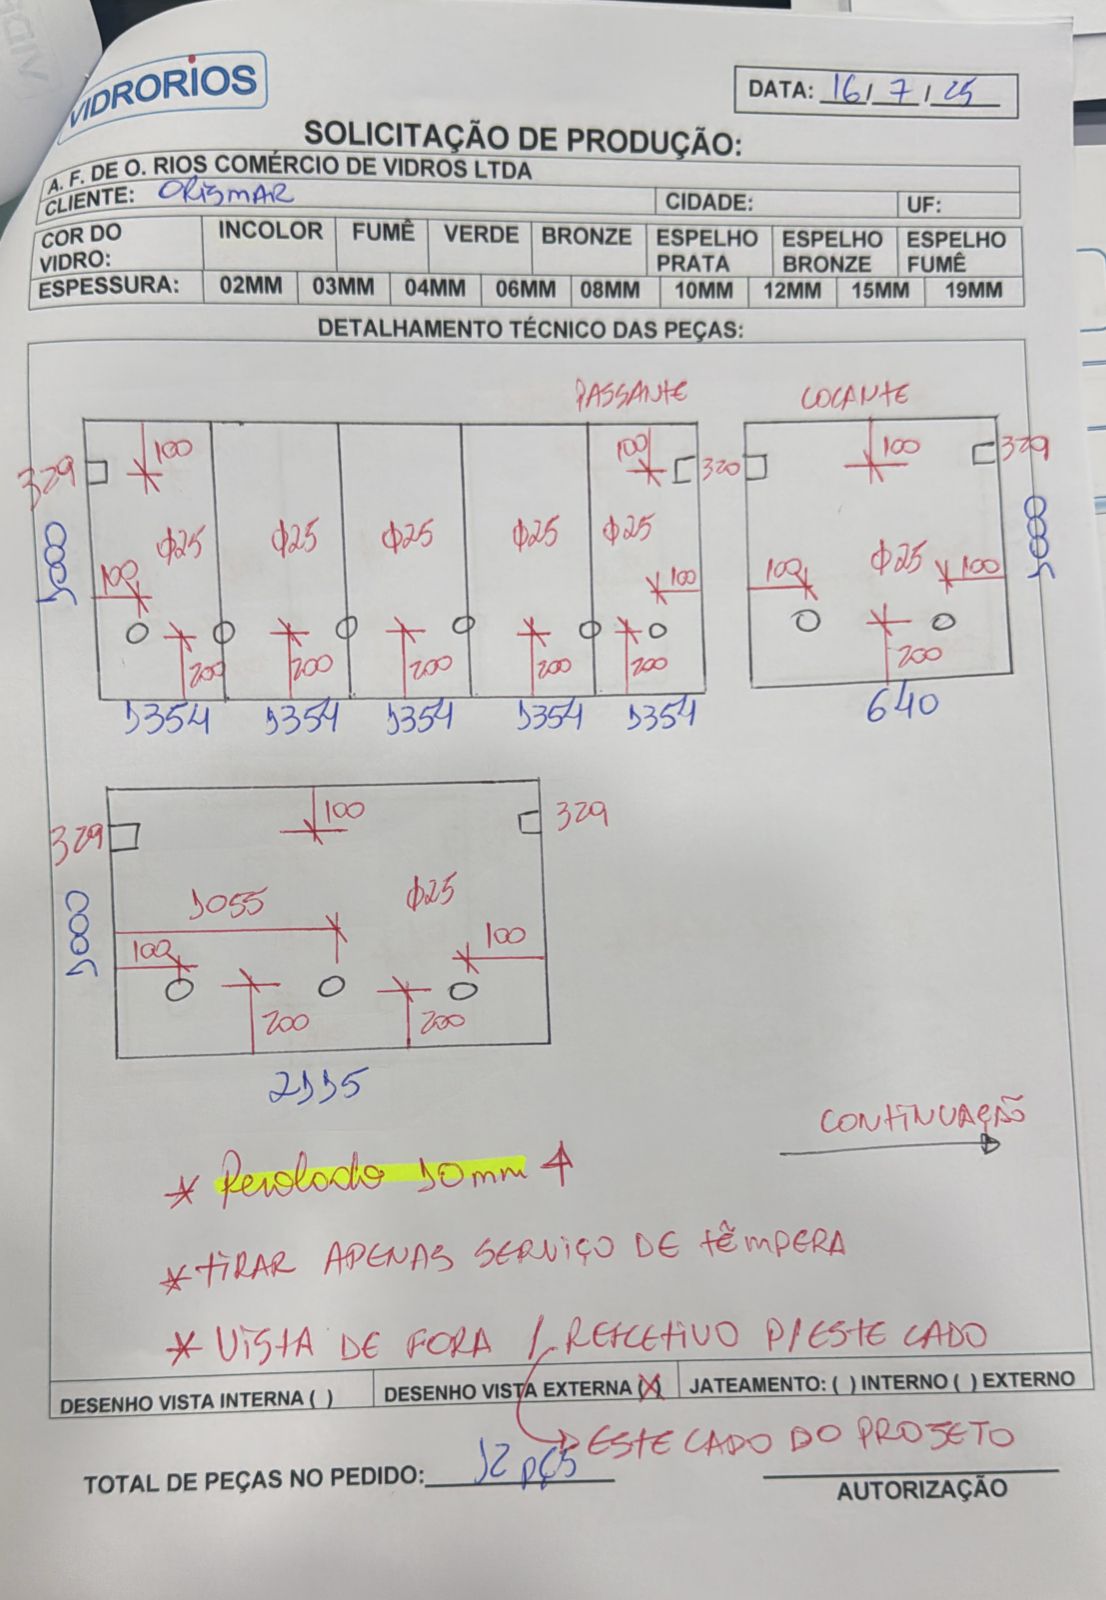 VIDRORIOS
DATA: 16/7/25
SOLICITAÇÃO DE PRODUÇÃO:
A. F. DE O. RIOS COMÉRCIO DE VIDROS LTDA
CLIENTE: ORISMAR CIDADE: UF:
COR DO VIDRO: INCOLOR FUMÊ VERDE BRONZE ESPELHO PRATA ESPELHO BRONZE ESPELHO FUMÊ
ESPESSURA: 02MM 03MM 04MM 06MM 08MM 10MM 12MM 15MM 19MM
DETALHAMENTO TÉCNICO DAS PEÇAS:
PASSANTE LOCANTE
100 100 100
329 320 329
1000 Φ25 Φ25 Φ25 Φ25 Φ25 Φ25 1000
100 100 100 100
200 200 200 200 200 200
1354 1354 1354 1354 1354 640
100
329 329
1000 1055 Φ25
100 100
200 200
2115
CONTINUAÇÃO
* Perolado 10mm 4
* TIRAR APENAS SERVIÇO DE TÊMPERA
* VISTA DE FORA / REFLETIVO P/ESTE LADO
DESENHO VISTA INTERNA ( ) DESENHO VISTA EXTERNA (X) JATEAMENTO: ( ) INTERNO ( ) EXTERNO
ESTE LADO DO PROJETO
TOTAL DE PEÇAS NO PEDIDO: 12 pçs
AUTORIZAÇÃO